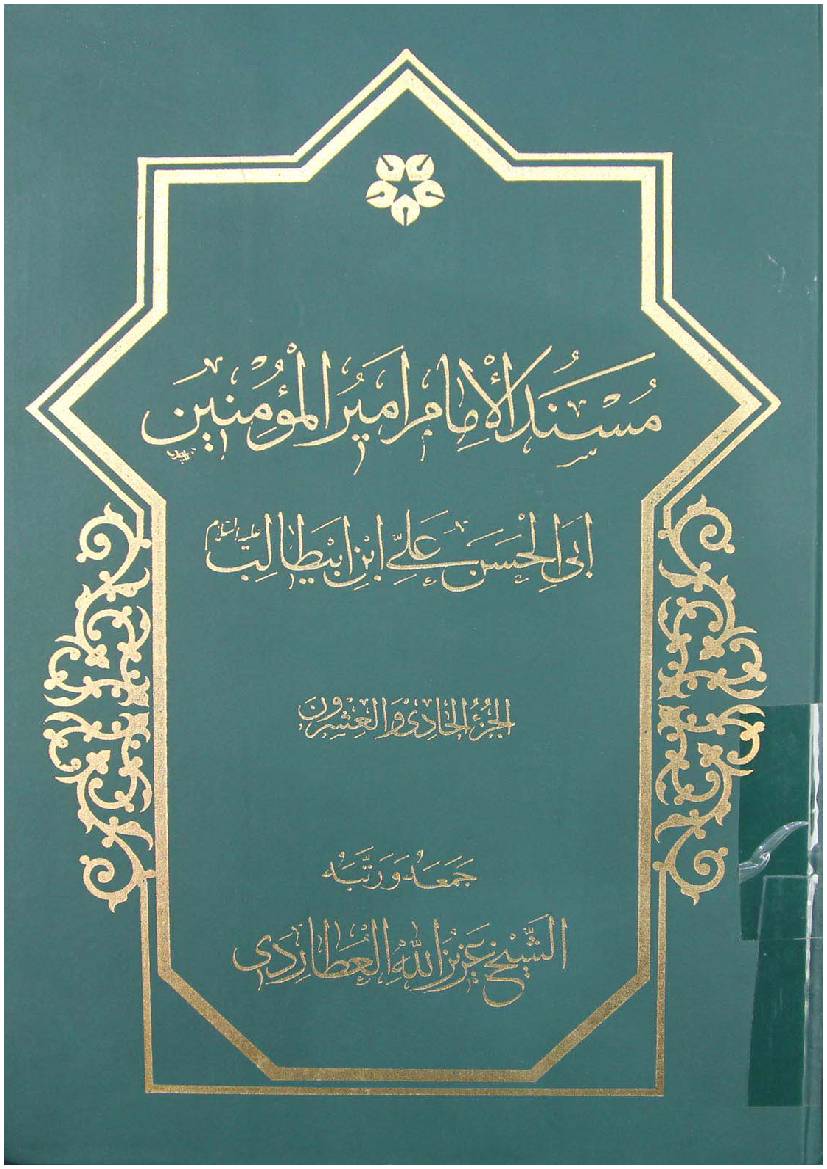 مُسْنَدُ الْإِمَامِ أَمِيرِ الْمُؤْمِنِينَ
أَبِي الْحَسَنِ عَلِيِّ ابْنِ ابيطالِب عليه السلام
الجزء الحادي والعشرون
جَمَعَهُ وَرَتَّبَهُ
الشَّيْخُ عَزِيزُ اللهِ الْعُطَارِدِي